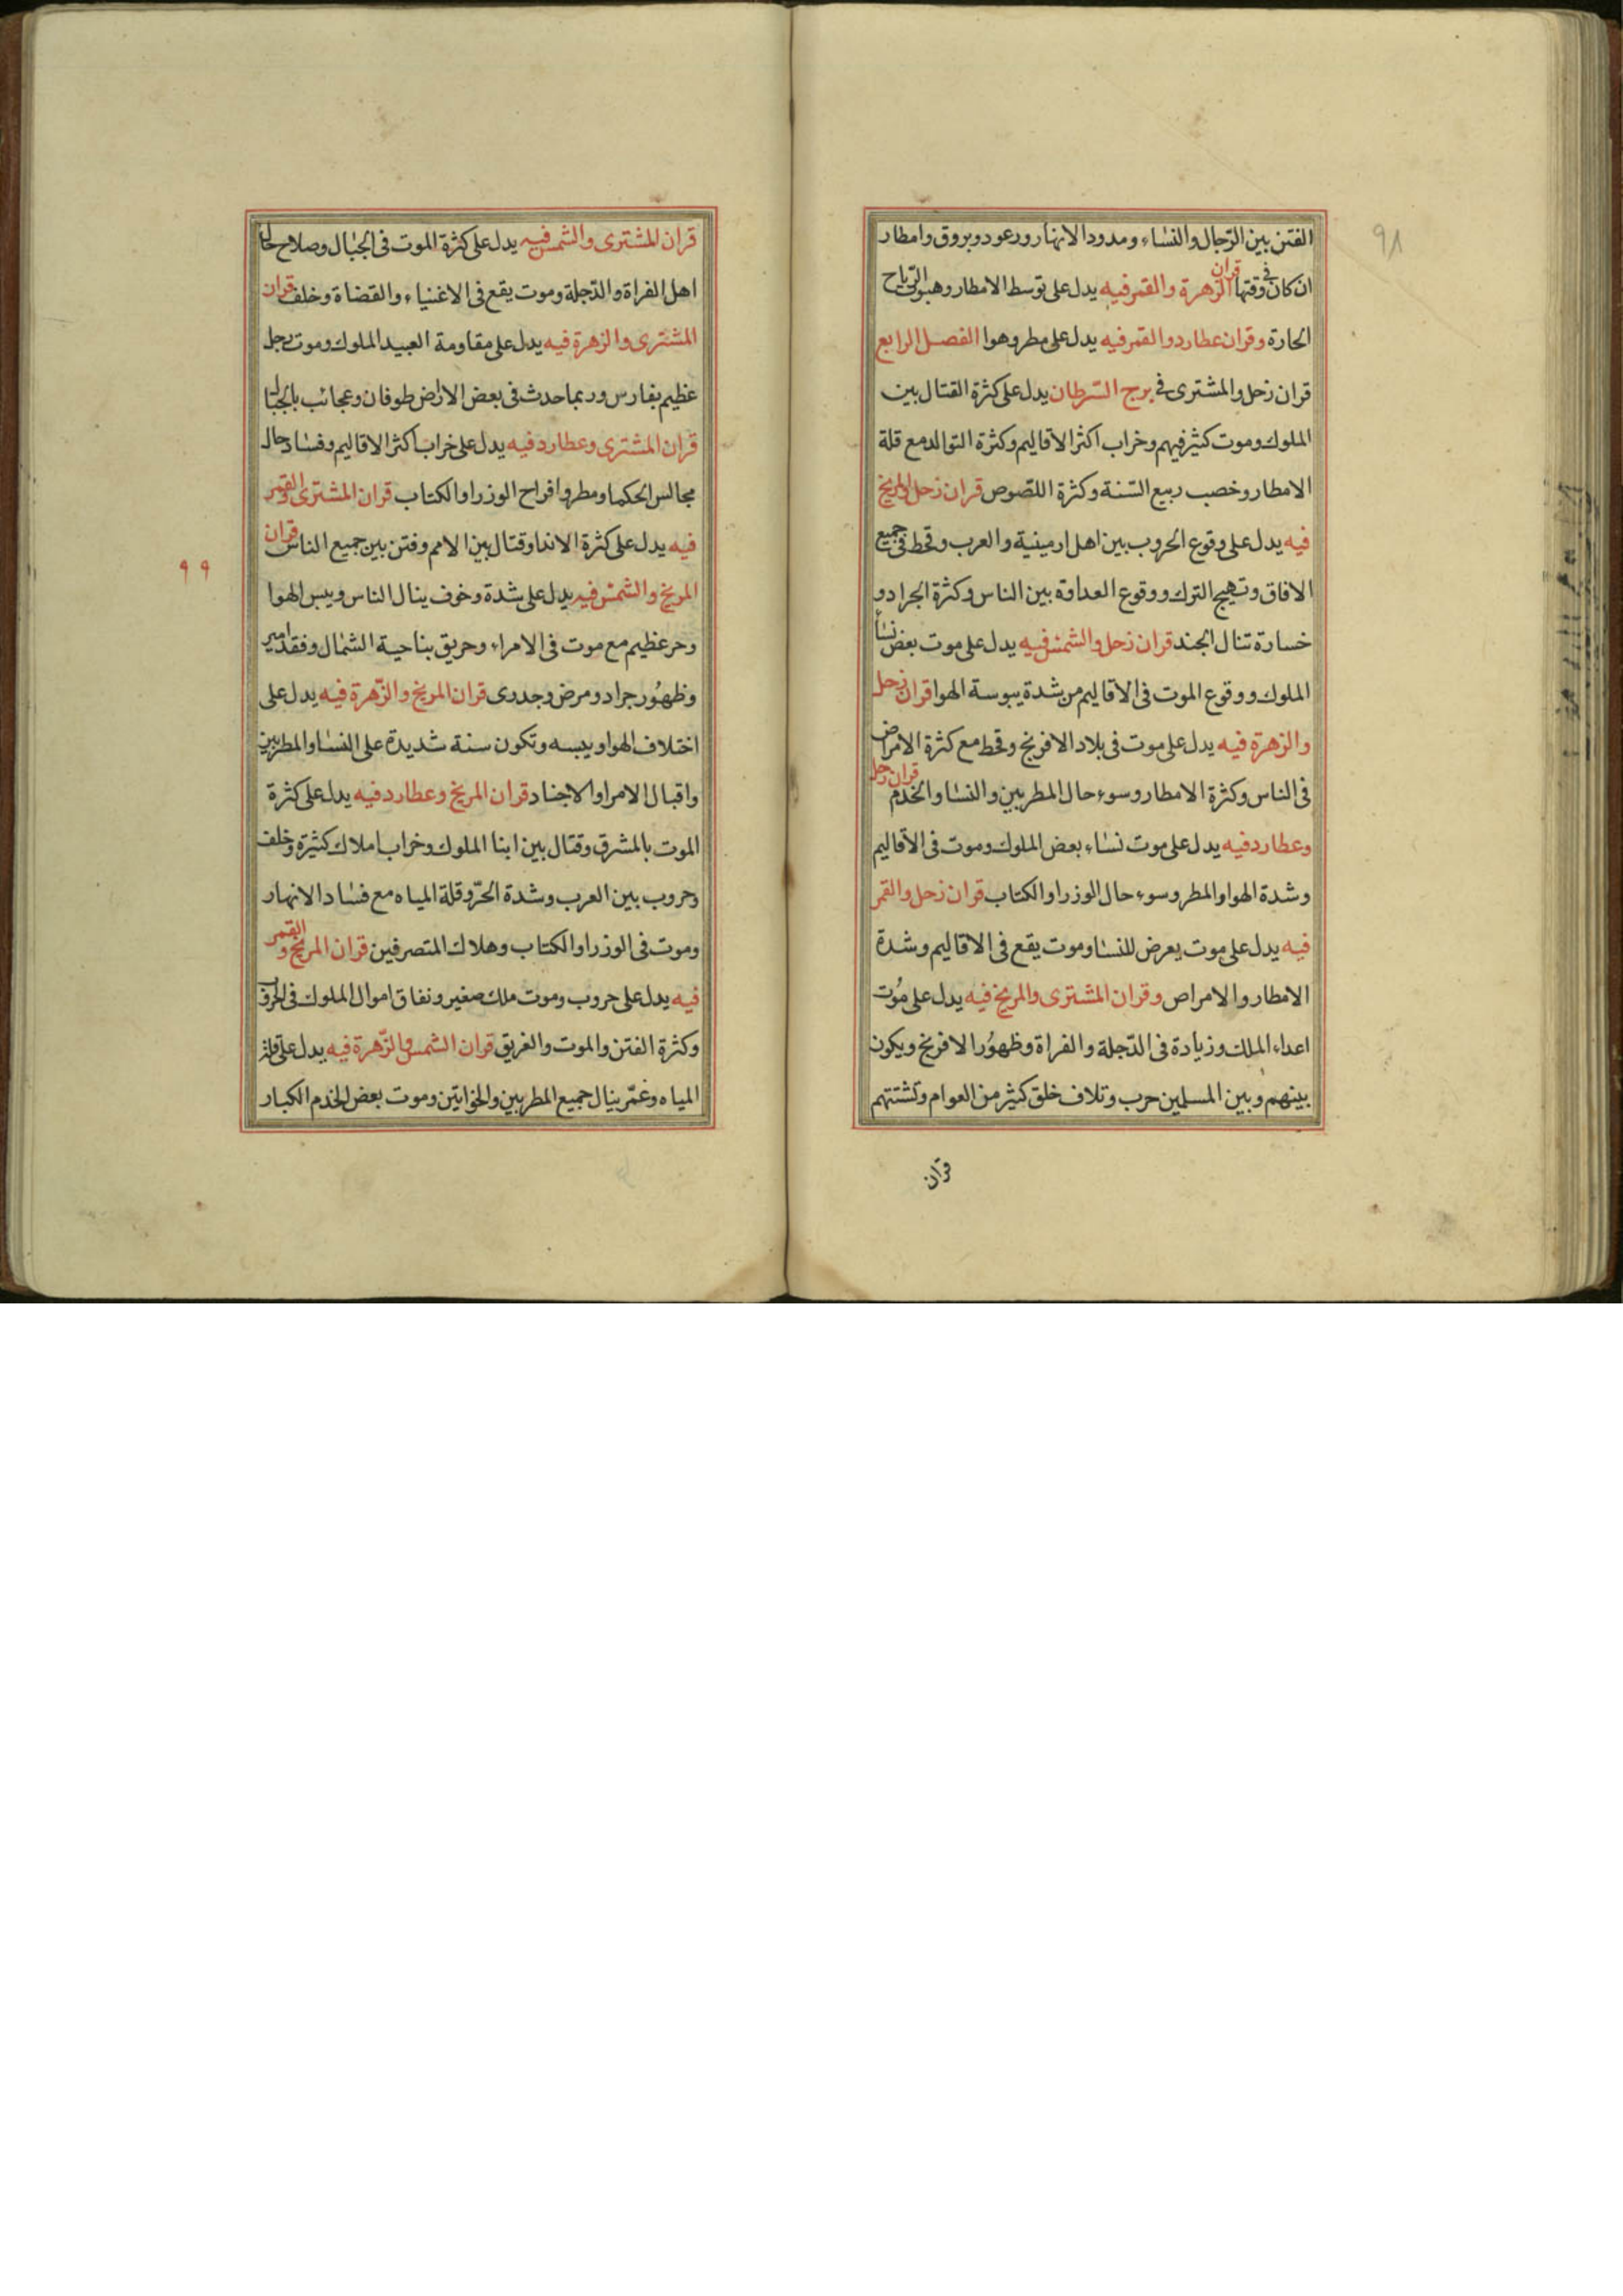 ٩٨
الفتن بين الرّجال والنساء ومدود الانهار ورعود وبروق وامطار
ان كان فى وقتها قران الزهرة والقمر فيه يدل على توسط الامطار وهبوب الرّياح
الحارة وقران عطارد والقمر فيه يدل على مطر وهوا الفصل الرابع
قران زحل والمشترى فى برج السّرطان يدل على كثرة القتال بين
الملوك وموت كثير فيهم وخراب اكثر الاقاليم وكثرة التوالد مع قلة
الامطار وخصب ربيع السّنة وكثرة اللصوص قران زحل والمريخ
فيه يدل على وقوع الحروب بين اهل ارمينية والعرب وقحط فى جميع
الافاق وتهيج الترك ووقوع العداوة بين الناس وكثرة الجراد و
خسارة تنال الجند قران زحل والشمس فيه يدل على موت بعض نسا
الملوك ووقوع الموت فى الاقاليم من شدة يبوسة الهوا قران زحل
والزهرة فيه يدل على موت فى بلاد الافرنج وقحط مع كثرة الامراض
فى الناس وكثرة الامطار وسوء حال المطربين والنسا والخدم قران زحل
وعطارد فيه يدل على موت نساء بعض الملوك وموت فى الاقاليم
وشدة الهوا والمطر وسوء حال الوزرا والكتاب قران زحل والقمر
فيه يدل على موت يعرض للنسا وموت يقع فى الاقاليم وشدة
الامطار والامراص وقران المشترى والمريخ فيه يدل على مُوت
اعداء الملك وزيادة فى الدّجلة والفراة وظهوُر الافرنج ويكون
بينهم وبين المسلمين حرب وتلاف خلق كثير من العوام وتشتتهم
قران
قران المشترى والشمس فيه يدل على كثرة الموت فى الجبال وصلاح حال
اهل الفراة والدّجلة وموت يقع فى الاغنياء والقضاة وخلف قران
المشترى والزهرة فيه يدل على مقاومة العبيد الملوك وموت رجل
عظيم بفارس وربما حدث فى بعض الاراض طوفان وعجائب بالجبال
قران المشترى وعطارد فيه يدل على خراب اكثر الاقاليم وفساد حال
مجالس الحكما ومطر وافراح الوزرا والكتاب قران المشترى والقمر
فيه يدل على كثرة الاندا وقتال بين الامم وفتن بين جميع الناس قران
المريخ والشمس فيه يدل على شدة وخوف ينال الناس ويبس الهوا
وحر عظيم مع موت فى الامراء وحريق بناحية الشمال وفقد امير
وظهُور جراد ومرض وجدرى قران المريخ والزّهرة فيه يدل على
اختلاف الهوا ويبسه وتكون سنة شديدة على النسا والمطربين
واقبال الامرا والاجناد قران المريخ وعطارد فيه يدل على كثرة
الموت بالمشرق وقتال بين ابنا الملوك وخراب املاك كثيرة وخلف
وحروب بين العرب وشدة الحرّ وقلة المياه مع فساد الانهار
وموت فى الوزرا والكتاب وهلاك المتصرفين قران المريخ والقمر
فيه يدل على حروب وموت ملك صغير ونفاق اموال الملوك فى الحروب
وكثرة الفتن والموت والغريق قران الشمس والزّهرة فيه يدل على قلة
المياه وغمّ ينال جميع المطربين والخواتين وموت بعض الخدم الكبار
٩٩